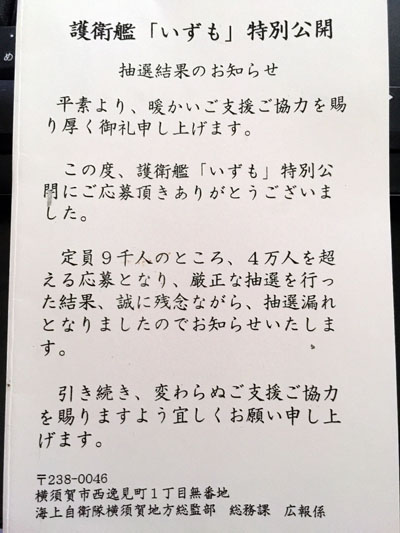 護衛艦「いずも」特別公開
抽選結果のお知らせ
平素より、暖かいご支援ご協力を賜
り厚く御礼申し上げます。
この度、護衛艦「いずも」特別公
開にご応募頂きありがとうございま
した。
定員９千人のところ、４万人を超
える応募となり、厳正な抽選を行っ
た結果、誠に残念ながら、抽選漏れ
となりましたのでお知らせいたしま
す。
引き続き、変わらぬご支援ご協力
を賜りますよう宜しくお願い申し上
げます。
〒238-0046
横須賀市西逸見町１丁目無番地
海上自衛隊横須賀地方総監部　総務課　広報係
め